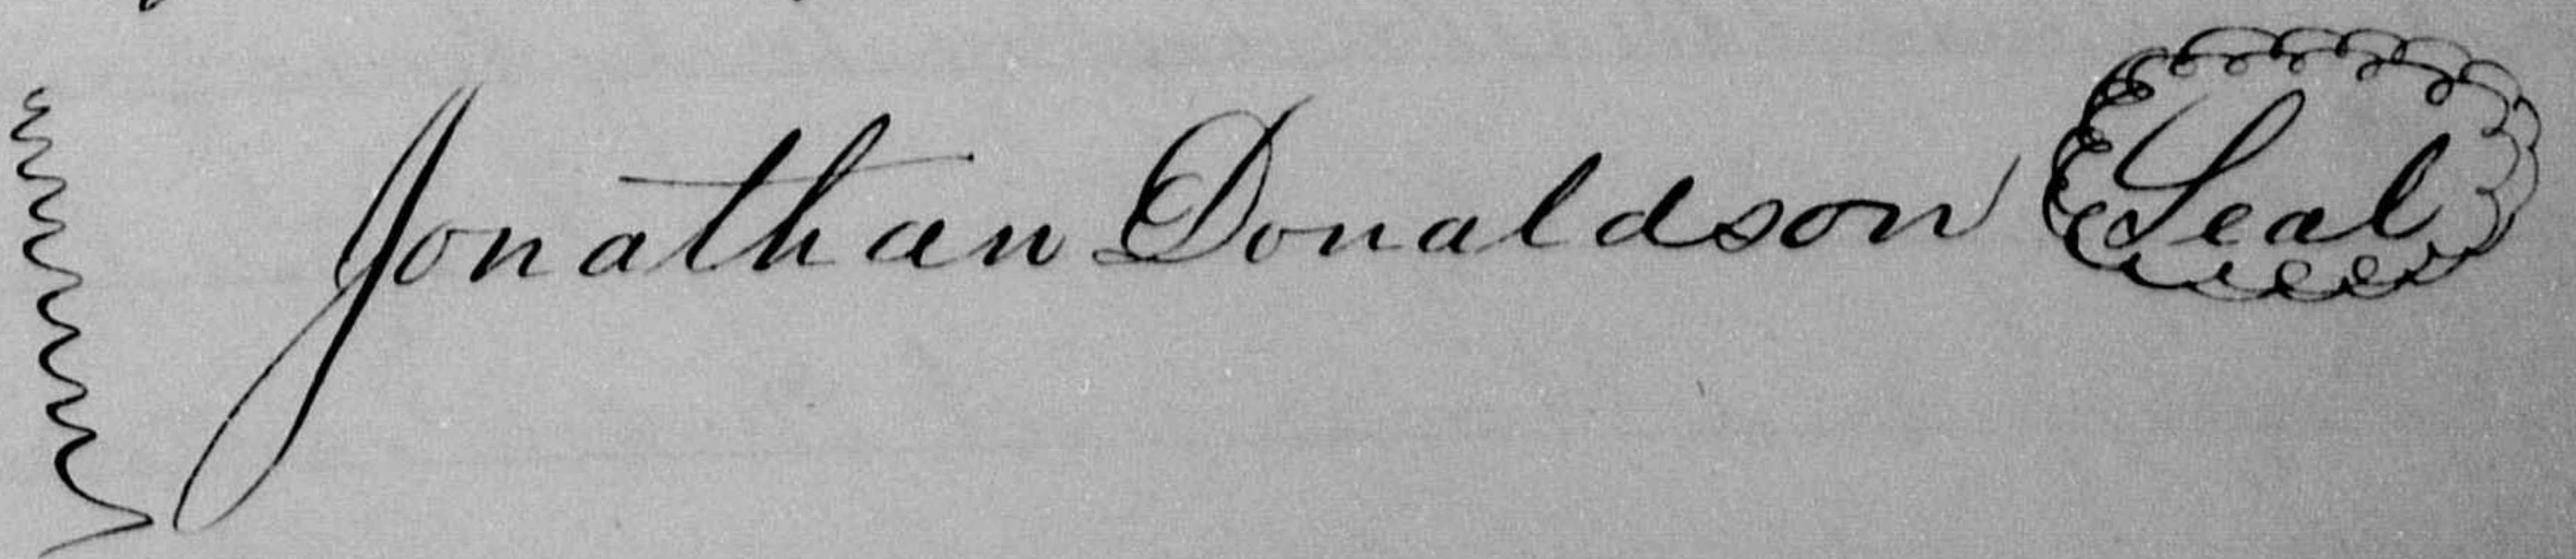 Jonathan Donaldson Seal